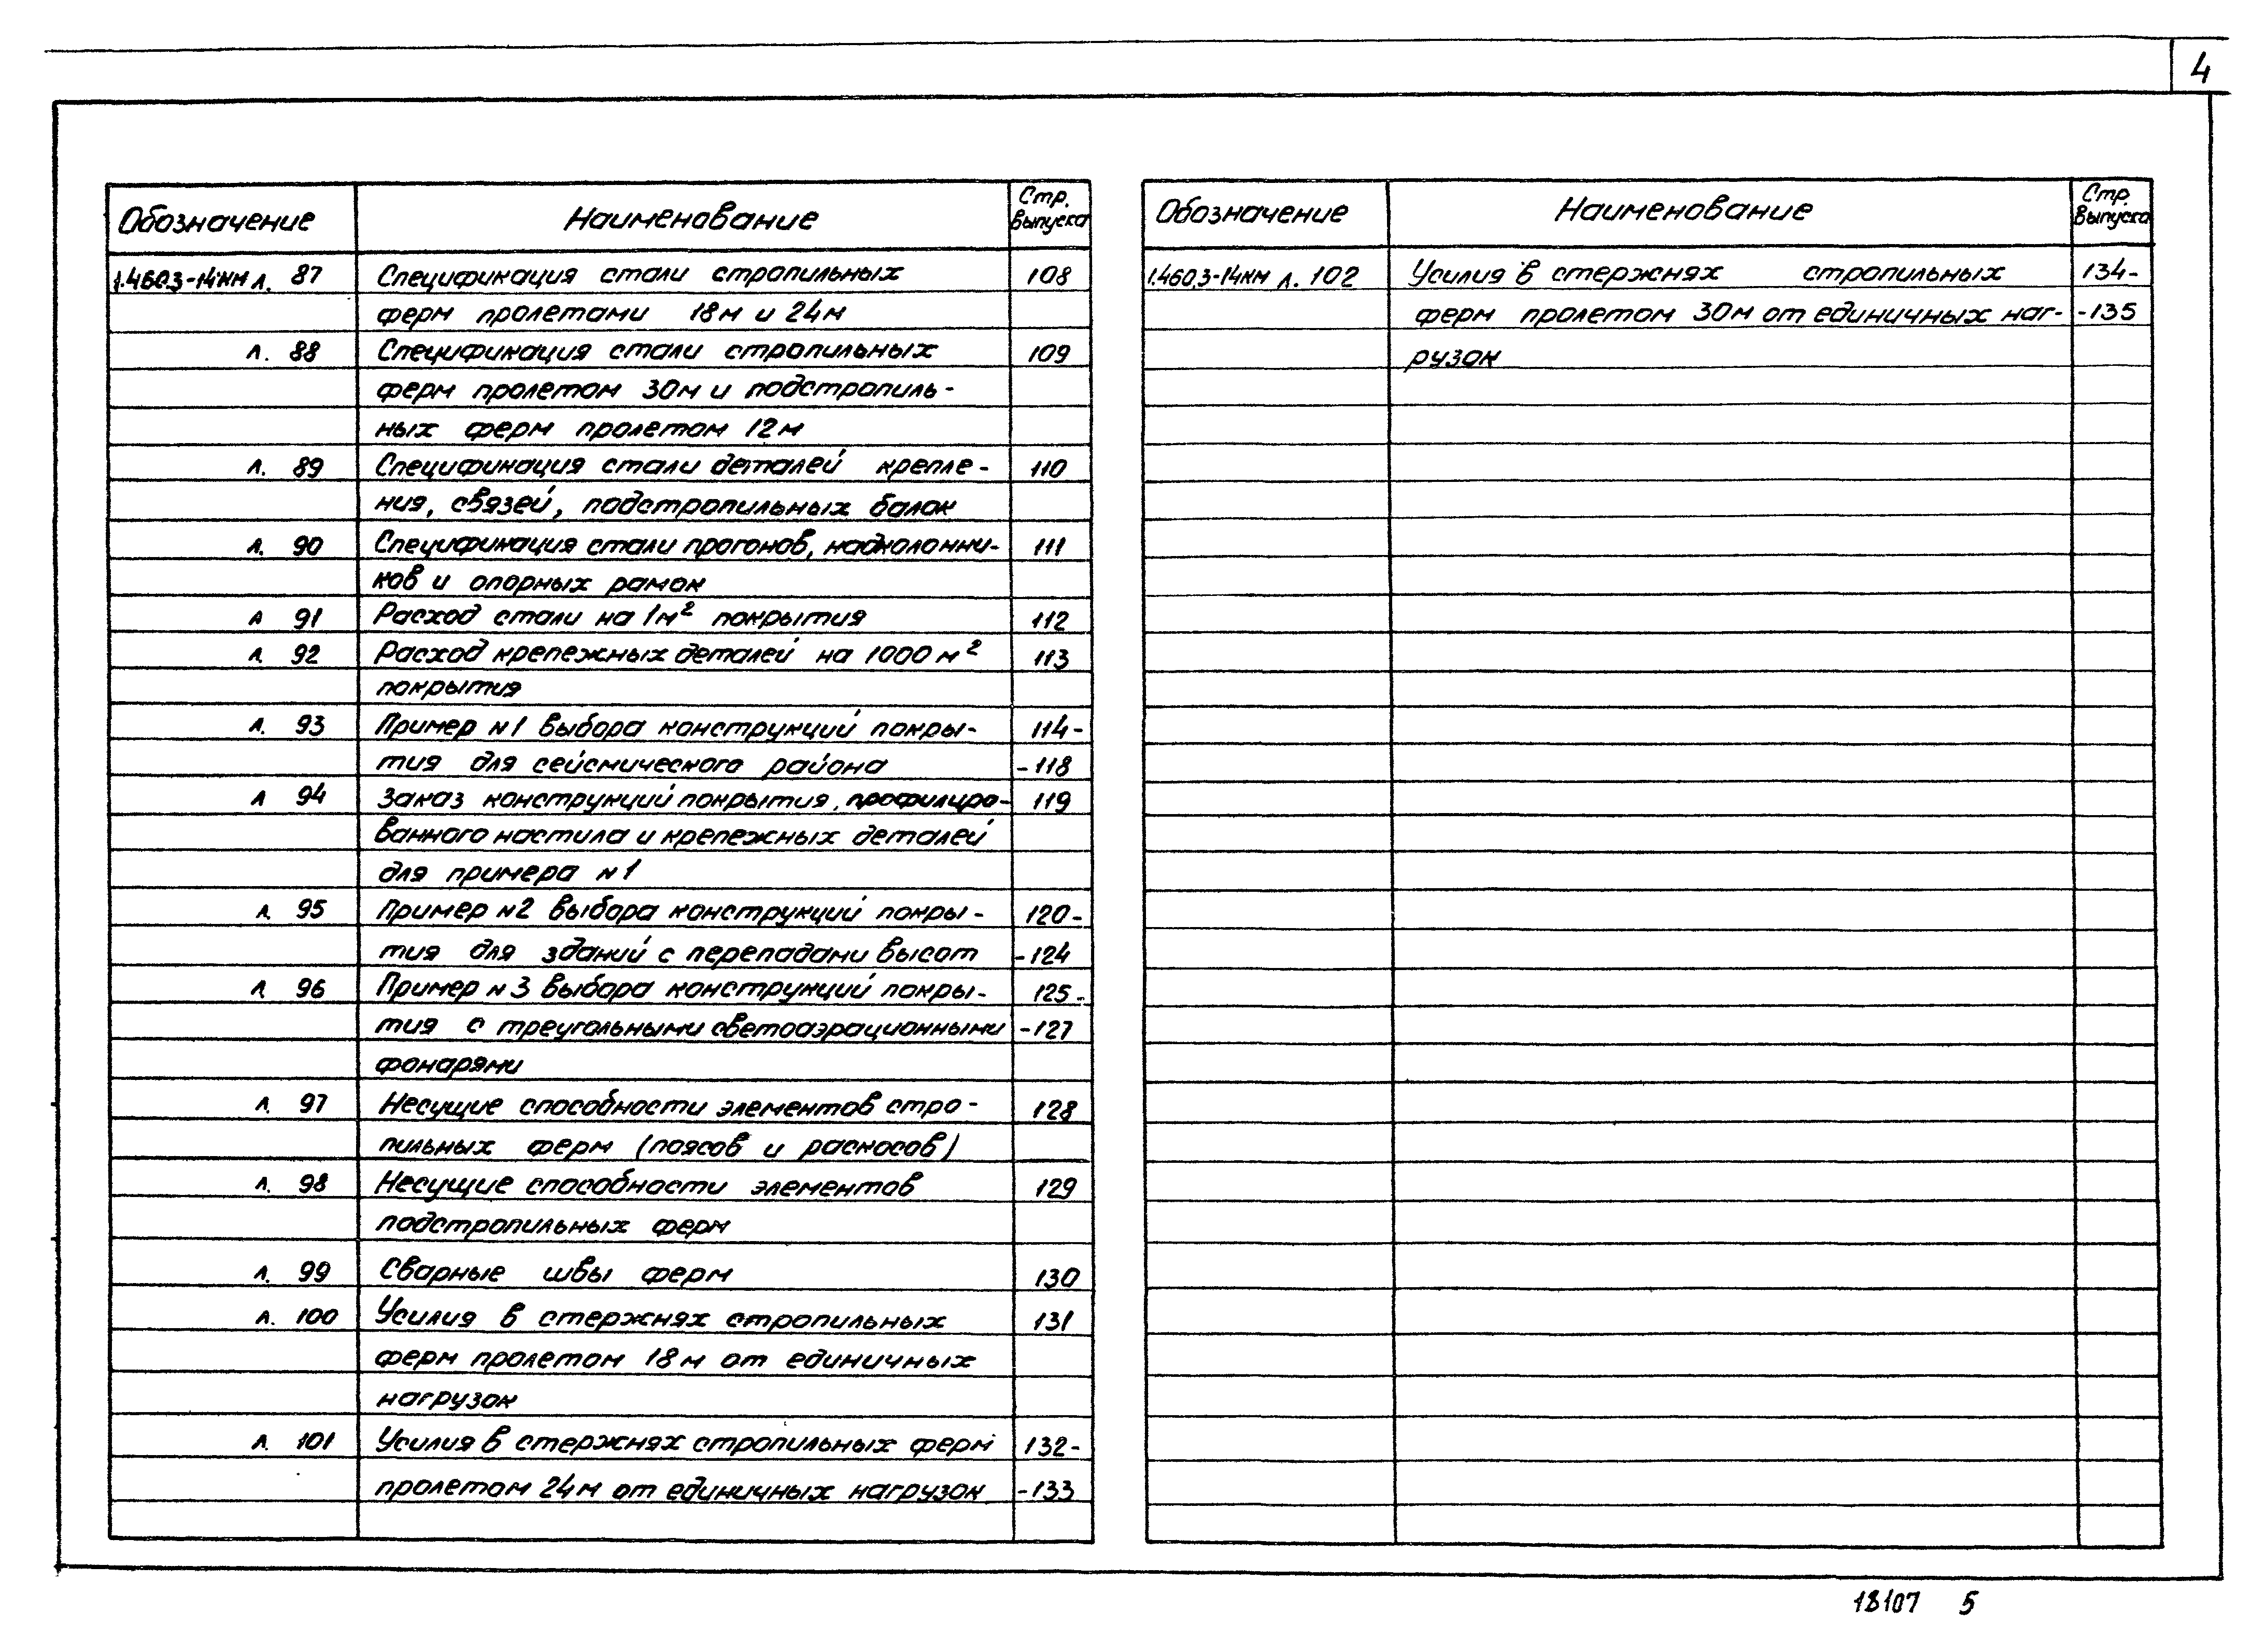 4
Обозначение Наименование Стр. выпуска
1.460.3-14КМ л. 87 Спецификация стали стропильных 108
ферм пролетами 18м и 24м
л. 88 Спецификация стали стропильных 109
ферм пролетом 30м и подстропиль-
ных ферм пролетом 12м
л. 89 Спецификация стали деталей крепле- 110
ния, связей, подстропильных балок
л. 90 Спецификация стали прогонов, надколонни- 111
ков и опорных рамок
л 91 Расход стали на 1м² покрытия 112
л. 92 Расход крепежных деталей на 1000 м² 113
покрытия
л. 93 Пример №1 выбора конструкций покры- 114-
тия для сейсмического района -118
л 94 Заказ конструкций покрытия, профилиро- 119
ванного настила и крепежных деталей
для примера №1
л. 95 Пример №2 выбора конструкций покры- 120-
тия для зданий с перепадами высот -124
л 96 Пример №3 выбора конструкций покры- 125-
тия с треугольными светоаэрационными -127
фонарями
л. 97 Несущие способности элементов стро- 128
пильных ферм (поясов и раскосов)
л. 98 Несущие способности элементов 129
подстропильных ферм
л. 99 Сварные швы ферм 130
л. 100 Усилия в стержнях стропильных 131
ферм пролетом 18м от единичных
нагрузок
л. 101 Усилия в стержнях стропильных ферм 132-
пролетом 24м от единичных нагрузок -133
Обозначение Наименование Стр. выпуска
1.460.3-14КМ л. 102 Усилия в стержнях стропильных 134-
ферм пролетом 30м от единичных наг- -135
рузок
18107 5